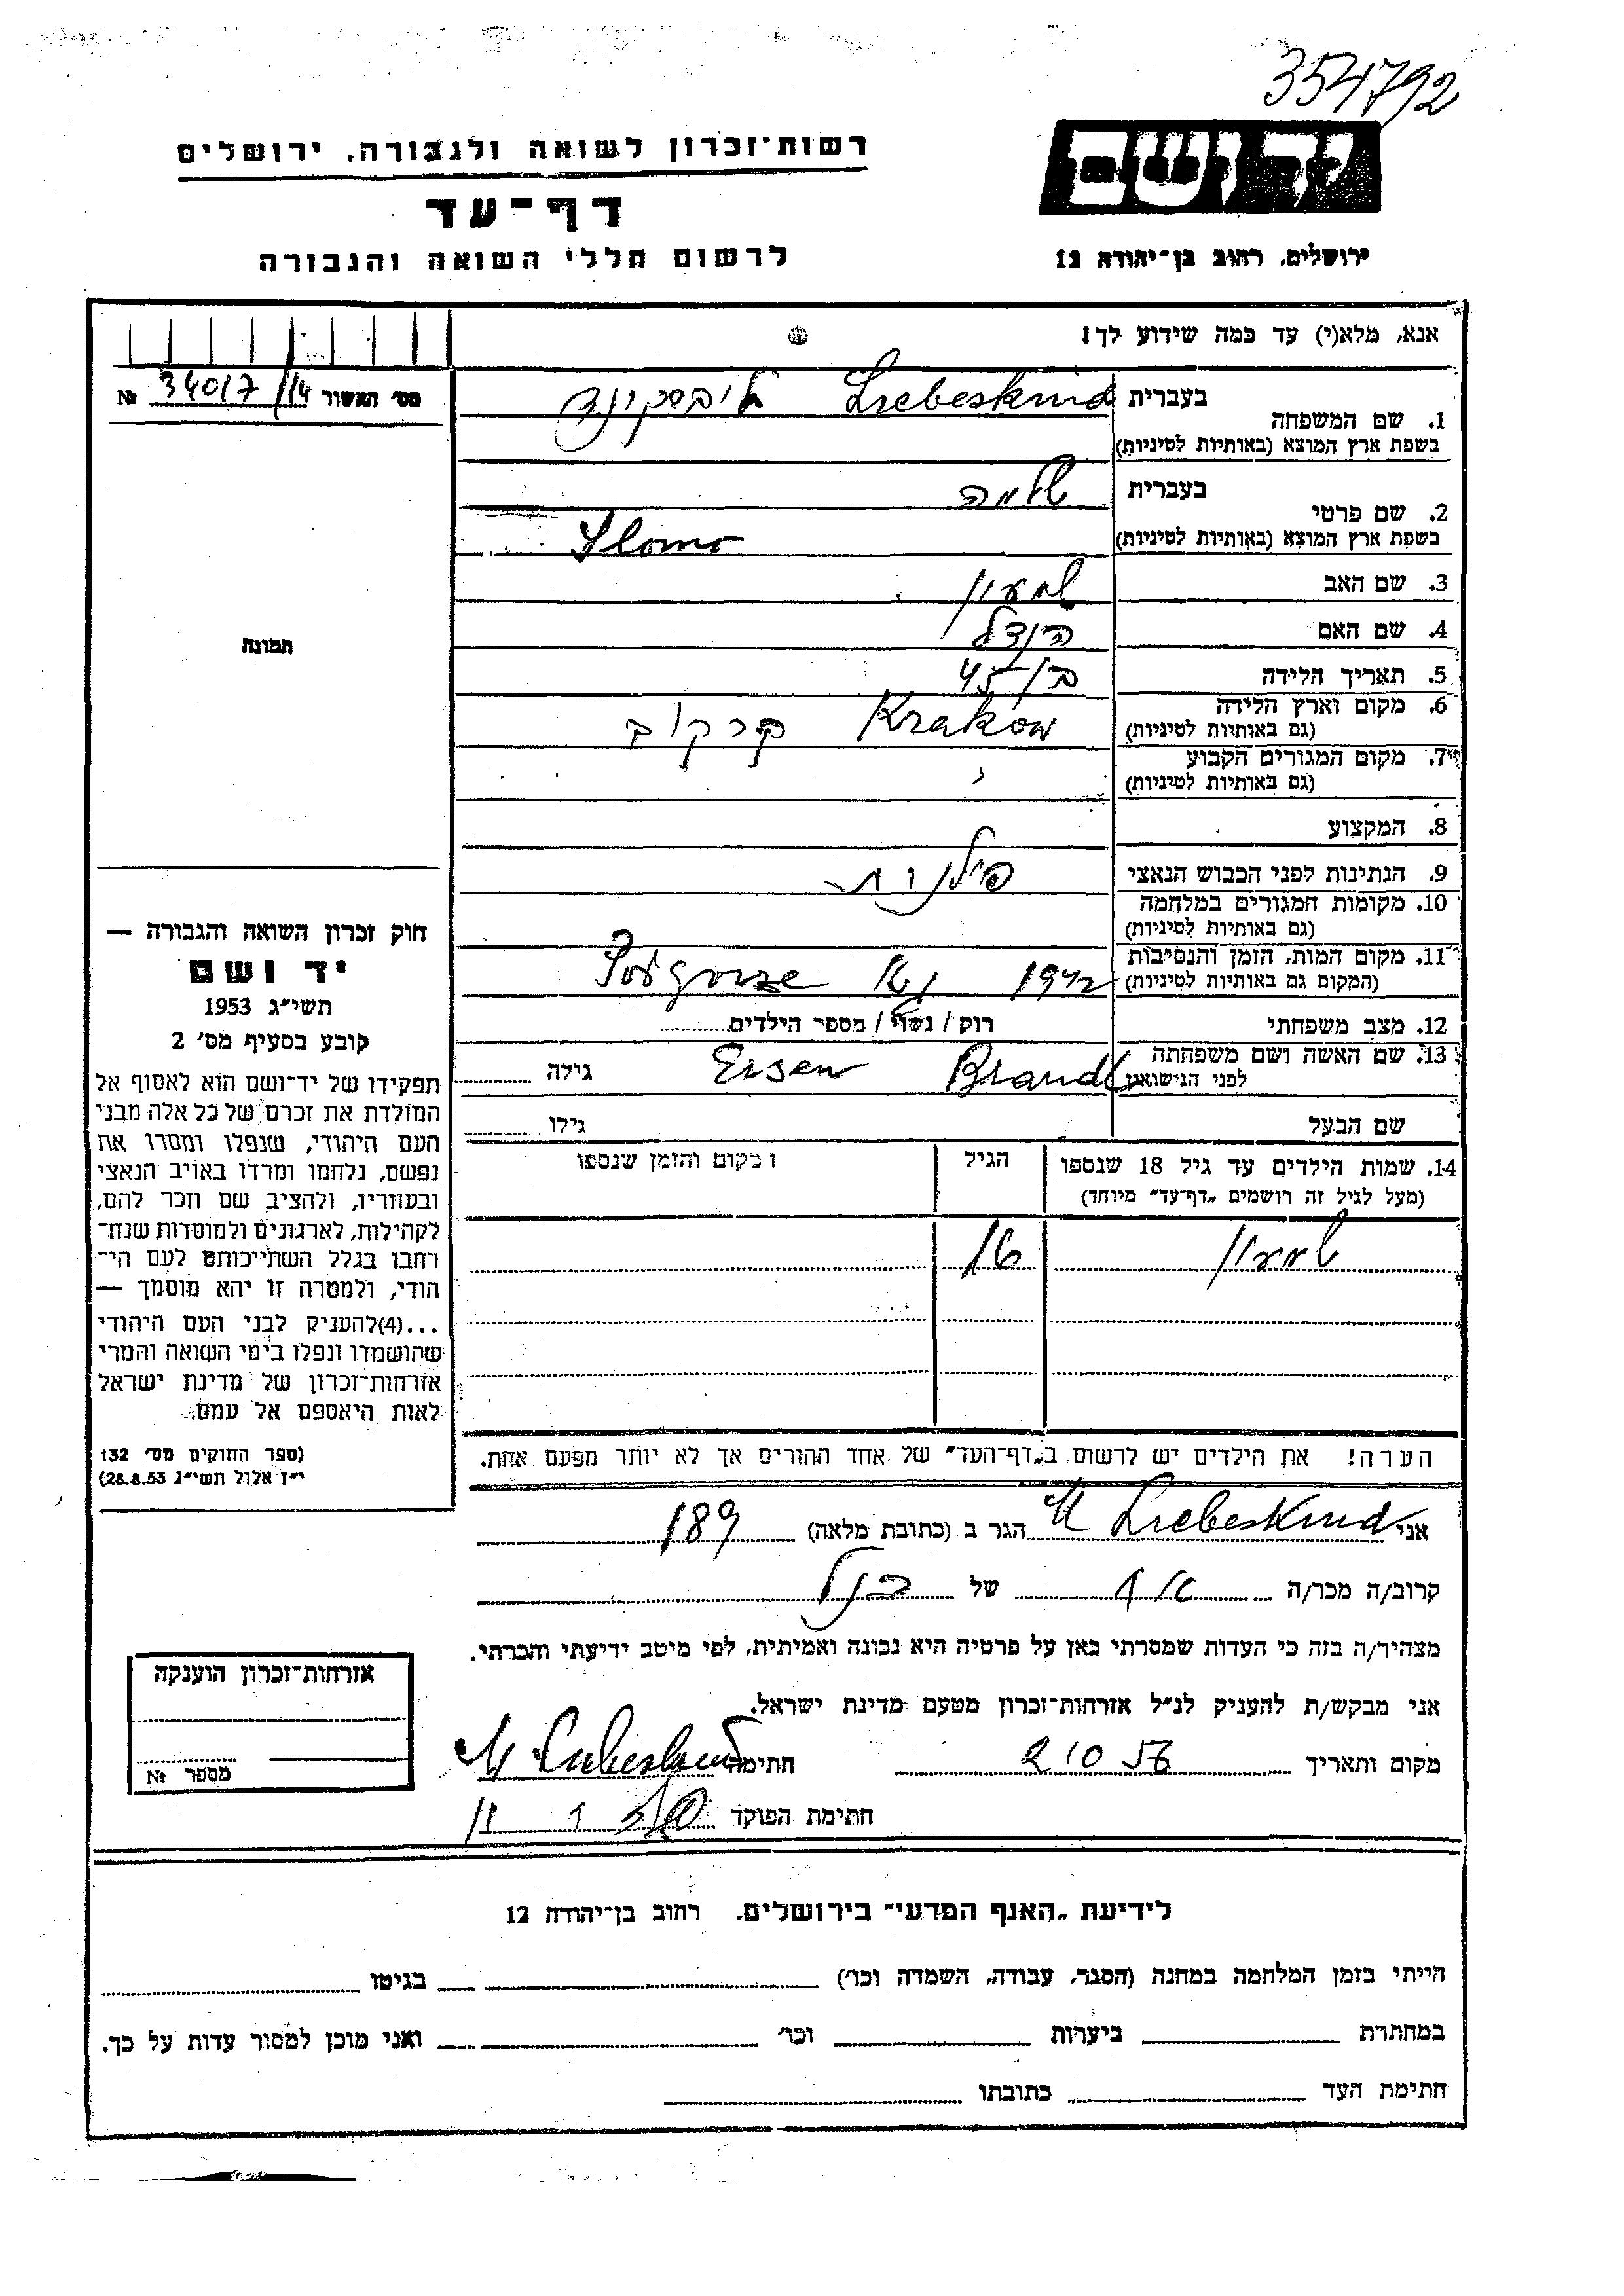 354792
רשות־זכרון לשואה ולגבורה, ירושלים
דף־עד
לרשום חללי השואה והגבורה
יד ושם
ירושלים, רחוב בן־יהודה 12
אנא, מלא(י) עד כמה שידוע לך!
מס׳ האשור 34017/14 №
בעברית Liebeskind ליבסקינד
1. שם המשפחה
בשפת ארץ המוצא (באותיות לטיניות)
בעברית שלמה
2. שם פרטי
בשפת ארץ המוצא (באותיות לטיניות) Slomo
3. שם האב שמעון
4. שם האם הינדל
5. תאריך הלידה בן 45
6. מקום וארץ הלידה
(גם באותיות לטיניות) Krakow קרקוב
7. מקום המגורים הקבוע
(גם באותיות לטיניות)
8. המקצוע
9. הנתינות לפני הכבוש הנאצי פולנית
10. מקומות המגורים במלחמה
(גם באותיות לטיניות)
11. מקום המות, הזמן והנסיבות
(המקום גם באותיות לטיניות) 1942 Podgorze
12. מצב משפחתי רוק / נשוי / מספר הילדים
13. שם האשה ושם משפחתה
לפני הנישואין Brandl Eisen גילה
שם הבעל גילו
14. שמות הילדים עד גיל 18 שנספו
(מעל לגיל זה רושמים „דף־עד״ מיוחד)
הגיל
המקום והזמן שנספו
שמעון
הערה! את הילדים יש לרשום ב„דף־העד״ של אחד ההורים אך לא יותר מפעם אחת.
תמונה
חוק זכרון השואה והגבורה —
יד ושם
תשי״ג 1953
קובע בסעיף מס׳ 2
תפקידו של יד־ושם הוא לאסוף אל
המולדת את זכרם של כל אלה מבני
העם היהודי, שנפלו ומסרו את
נפשם, נלחמו ומרדו באויב הנאצי
ובעוזריו, ולהציב שם וזכר להם,
לקהילות, לארגונים ולמוסדות שנח־
רחבו בגלל השתייכותם לעם הי־
הודי, ולמטרה זו יהא מוסמך —
...(4)להעניק לבני העם היהודי
שהושמדו ונפלו בימי השואה והמרי
אזרחות־זכרון של מדינת ישראל
לאות היאספם אל עמם.
(ספר החוקים מס׳ 132
י״ז אלול תשי״ג 28.8.53)
אני M Liebeskind הגר ב (כתובת מלאה) 189
קרוב/ה מכר/ה אח של הנ״ל
מצהיר/ה בזה כי העדות שמסרתי כאן על פרטיה היא נכונה ואמיתית, לפי מיטב ידיעתי והכרתי.
אני מבקש/ת להעניק לנ״ל אזרחות־זכרון מטעם מדינת ישראל.
מקום ותאריך 2 10 56 חתימה M Liebeskind
חתימת הפוקד
אזרחות־זכרון הוענקה
מספר №
לידיעת „האגף המדעי״ בירושלים. רחוב בן־יהודה 12
הייתי בזמן המלחמה במחנה (הסגר, עבודה, השמדה וכו׳) בגיטו
במחתרת ביערות וכו׳ ואני מוכן למסור עדות על כך.
חתימת העד כתובתו